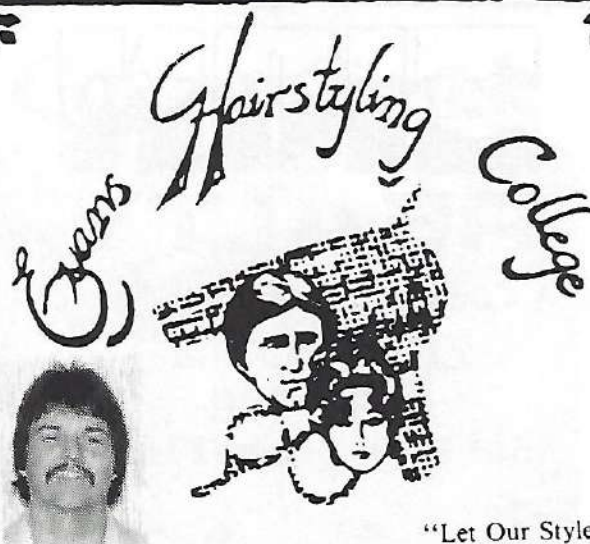 Evans Hairstyling College
“Let Our Style